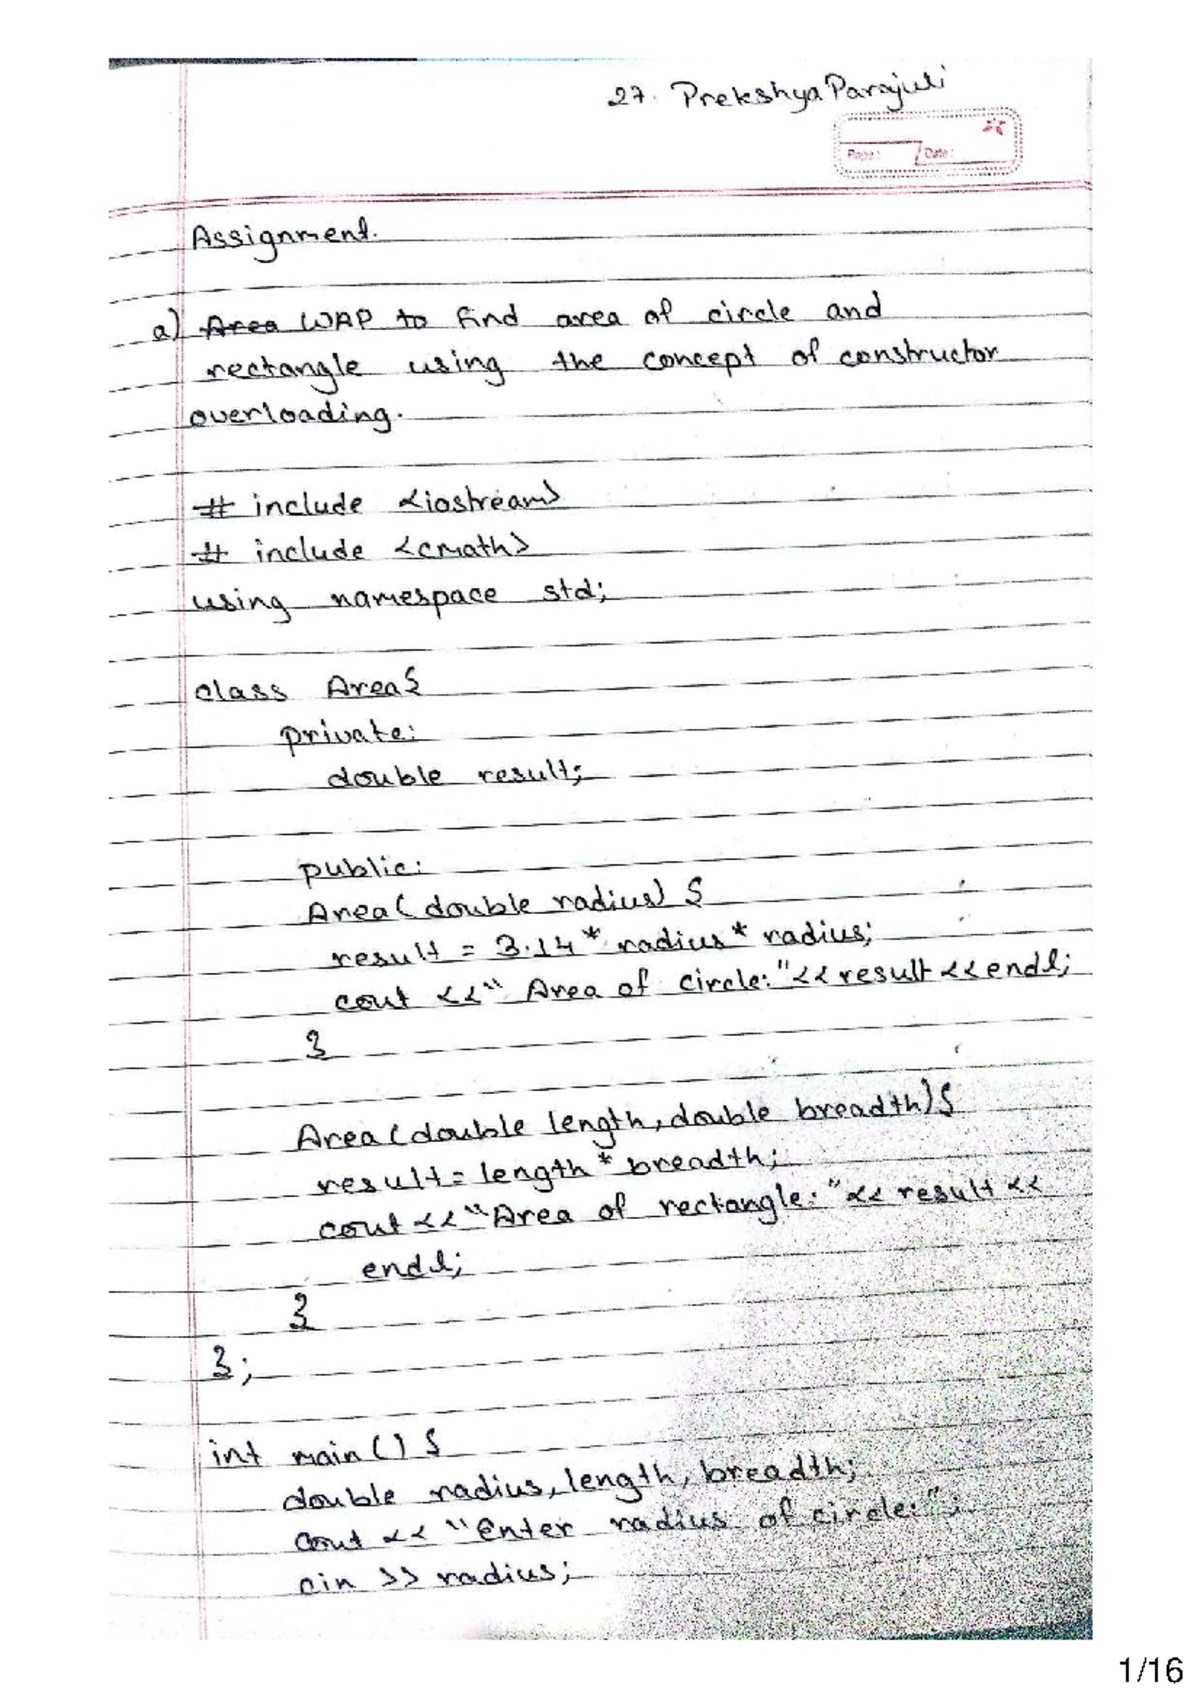 27. Prekshya Parajuli
Page: Date:
Assignment.
a) Area WAP to find area of circle and
rectangle using the concept of constructor
overloading.
# include <iostream>
# include <cmath>
using namespace std;
class Area{
private:
double result;
public:
Area( double radius) {
result = 3.14 * radius * radius;
cout <<" Area of circle:"<< result << endl;
}
Area (double length, double breadth) {
result = length * breadth;
cout << "Area of rectangle:" << result <<
endl;
}
};
int main () {
double radius, length, breadth;
cout << "Enter radius of circle:";
cin >> radius;
1/16